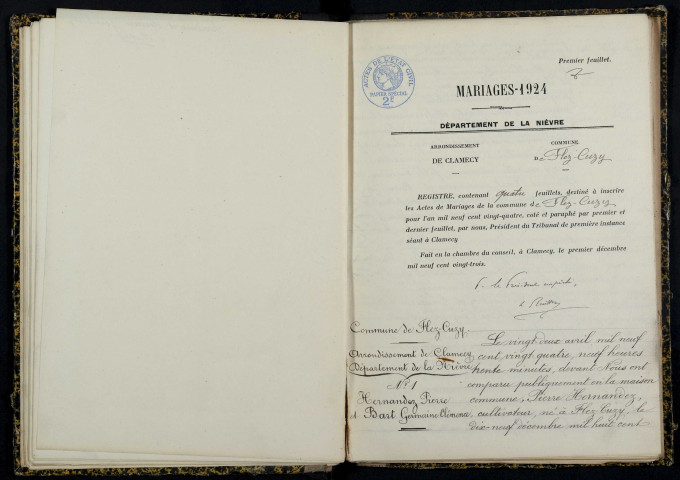 Premier feuillet.
ACTES DE L'ÉTAT CIVIL
PAPIER SPÉCIAL
2F
MARIAGES-1924
DÉPARTEMENT DE LA NIÈVRE
ARRONDISSEMENT
DE CLAMECY
COMMUNE
DE Flez-Cuzy
REGISTRE, contenant quatre feuillets, destiné à inscrire
les Actes de Mariages de la commune de Flez-Cuzy
pour l'an mil neuf cent vingt-quatre, coté et paraphé par premier et
dernier feuillet, par nous, Président du Tribunal de première instance
séant à Clamecy
Fait en la chambre du conseil, à Clamecy, le premier décembre
mil neuf cent vingt-trois.
P. le Président empêché,
Commune de Flez-Cuzy.
Arrondissement de Clamecy
Département de la Nièvre
N° 1
Hernandez Pierre
et Bart Germaine Clémence
Le vingt deux avril mil neuf
cent vingt quatre, neuf heures
trente minutes, devant Nous ont
comparu publiquement en la maison
commune, Pierre Hernandez,
cultivateur, né à Flez-Cuzy, le
dix-neuf décembre mil huit cent